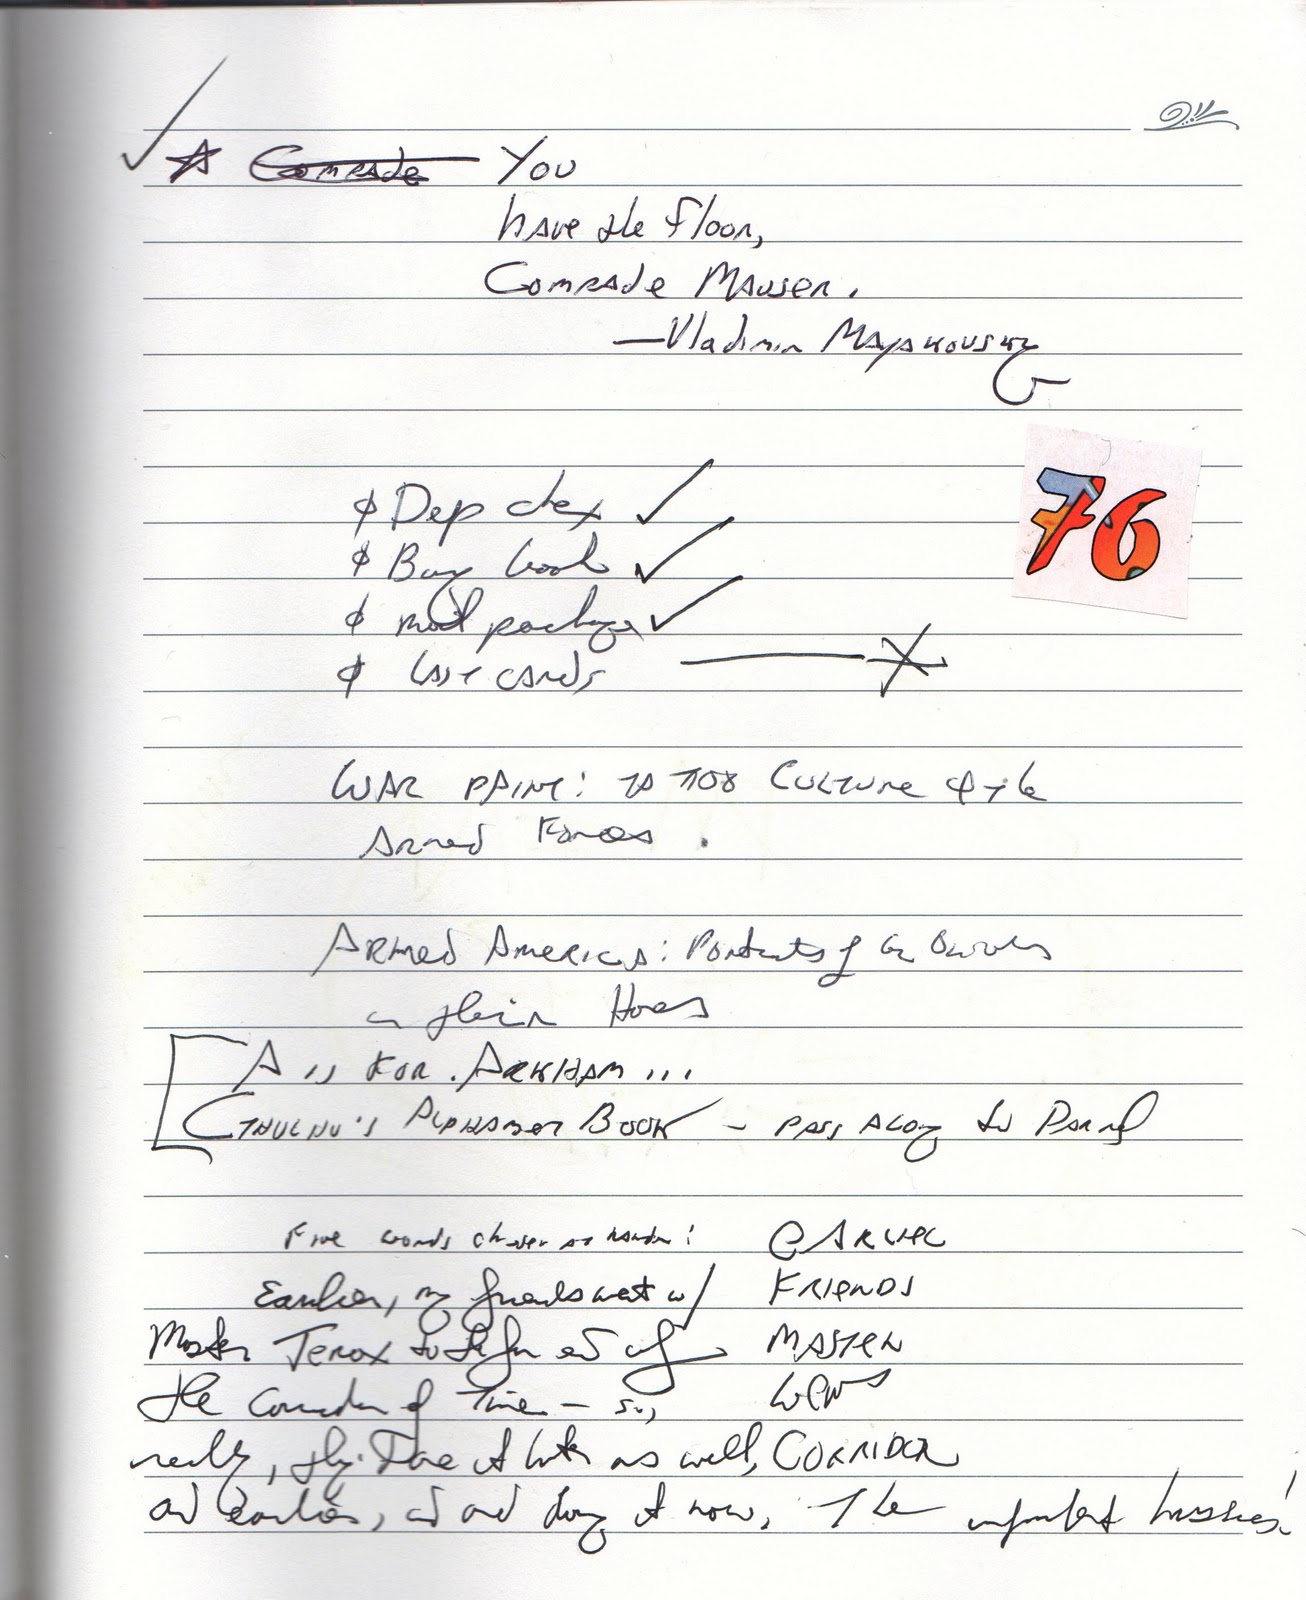 Comrade You
have the floor,
Comrade Mauser.
—Vladimir Mayakovsky
76
Dep chex
Buy book
mail package
Last cards
WAR PAINT: TATTOO CULTURE & the
Armed Forces.
Armed America: Portraits of Gun Owners
in their Homes
A is for Arkham...
Cthulhu's Alphabet Book - pass along to
Five words chosen at random: EARLIER
Earlier, my friends went w/ FRIENDS
Master Terox to the far end of MASTER
the Corridor of Time — so, WENT
really, they're as well, CORRIDOR
and earlier, and doing it now, The impudent hussies!